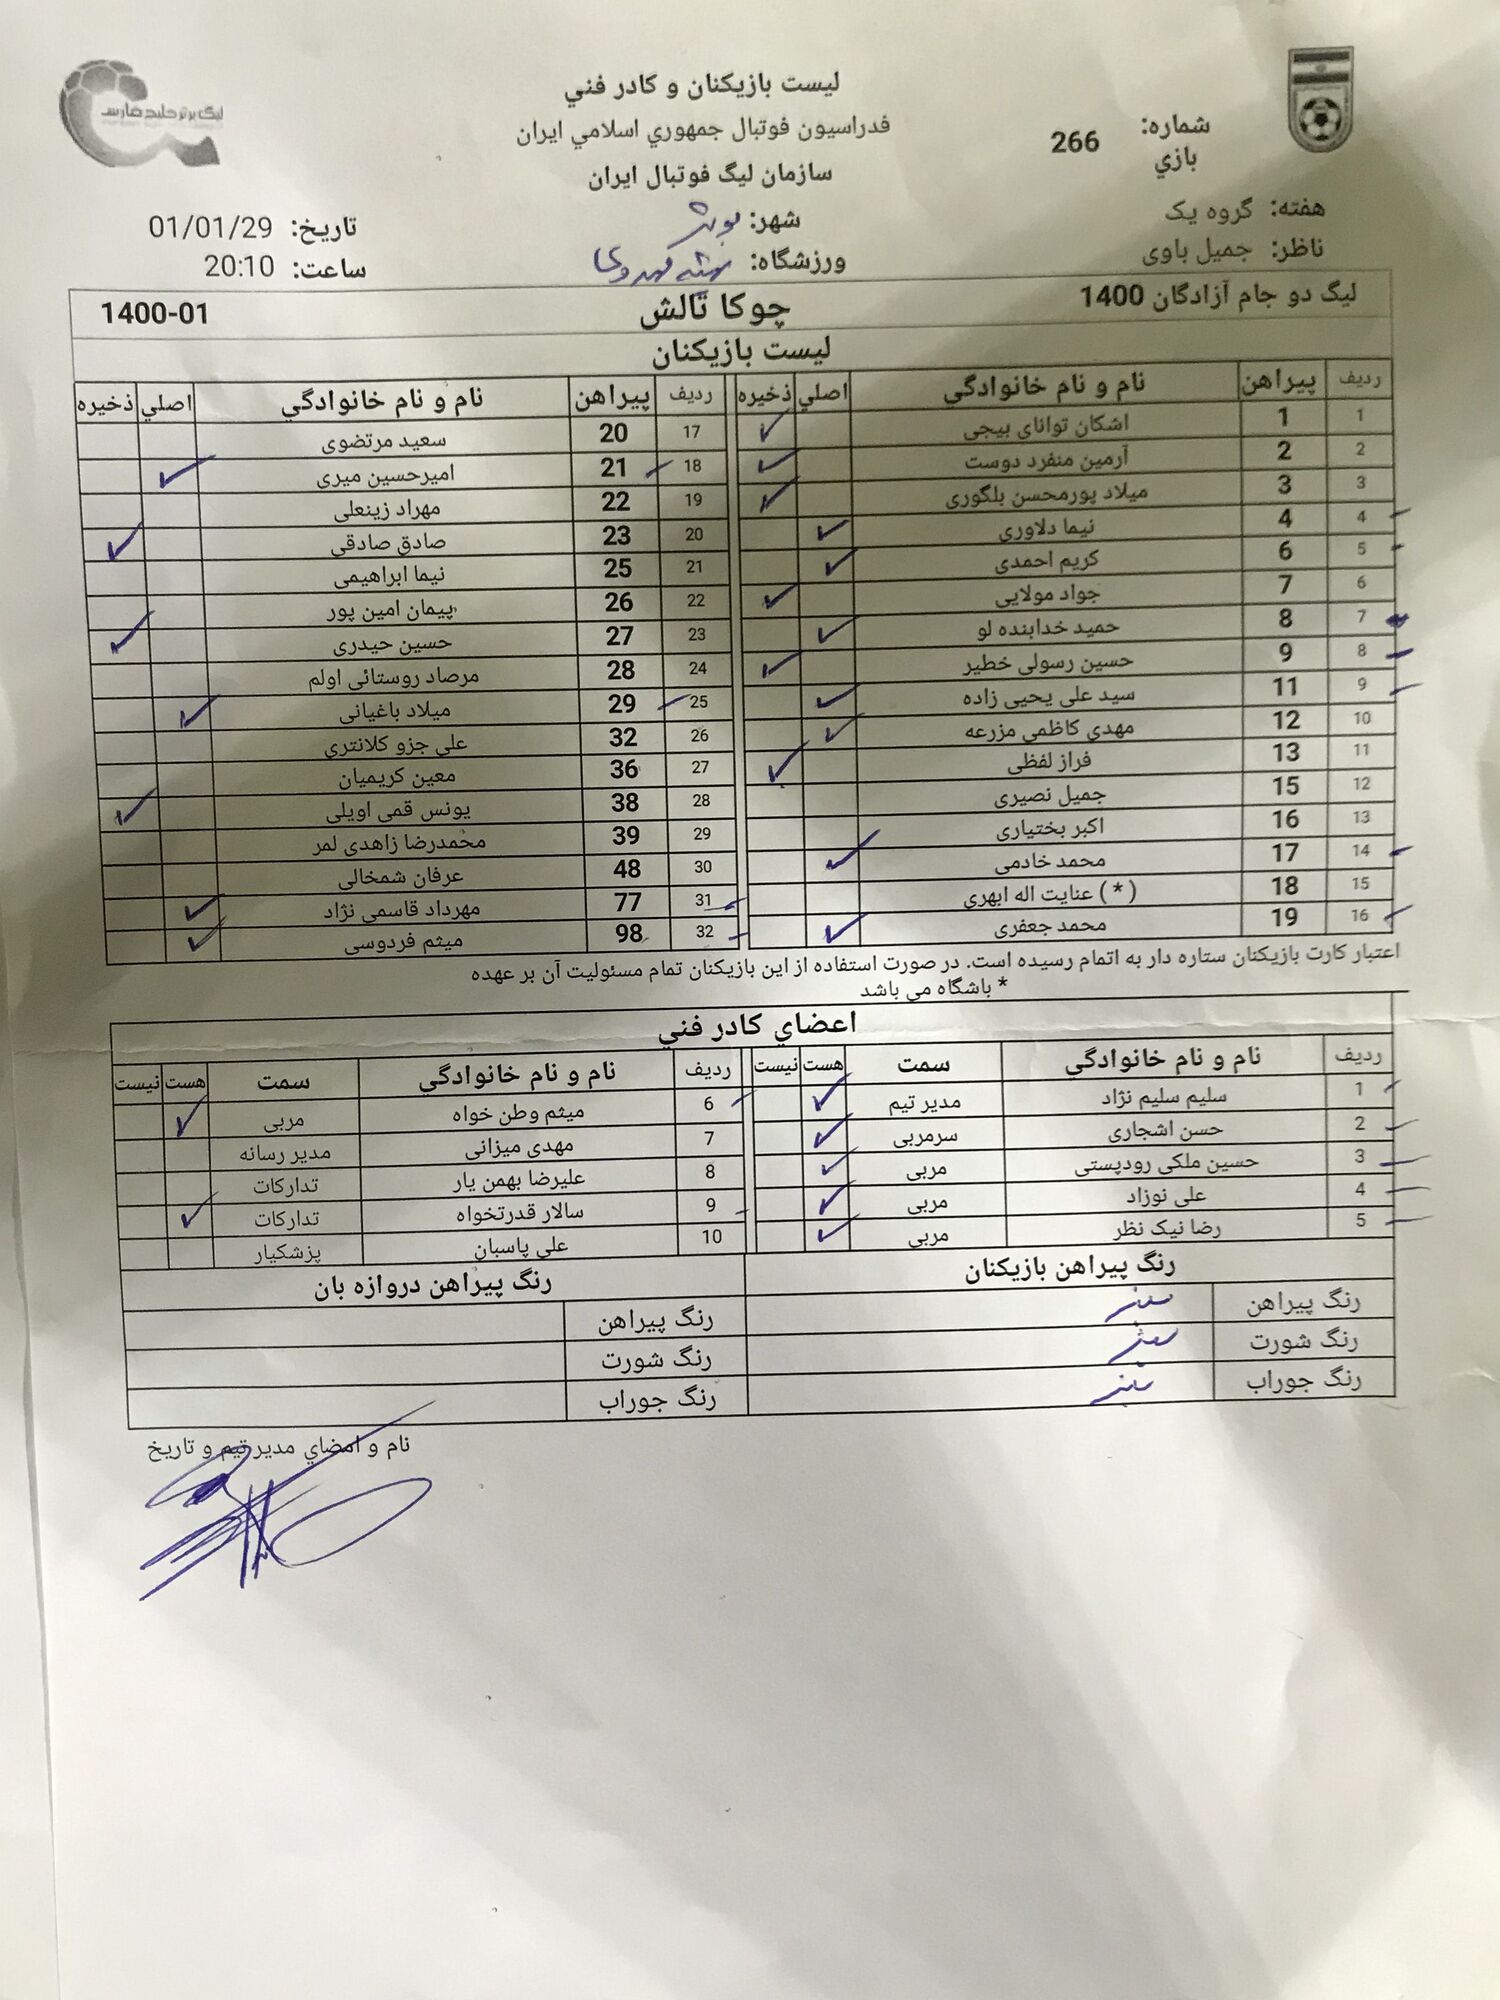 لیگ برتر خلیج فارس
لیست بازیکنان و کادر فني
فدراسیون فوتبال جمهوري اسلامي ایران
سازمان لیگ فوتبال ایران
شماره: 266
بازي
هفته: گروه یک
ناظر: جمیل باوی
شهر:
ورزشگاه: مهدوی
تاریخ: 01/01/29
ساعت: 20:10
لیگ دو جام آزادگان 1400 چوکا تالش 1400-01
لیست بازیکنان
ردیف پیراهن نام و نام خانوادگي اصلي ذخیره
1 1 اشکان توانای بیجی ✓
2 2 آرمین منفرد دوست ✓
3 3 میلاد پورمحسن بلگوری ✓
4 4 نیما دلاوری ✓
5 6 کریم احمدی ✓
6 7 جواد مولایی ✓
7 8 حمید خدابنده لو ✓
8 9 حسین رسولی خطیر ✓
9 11 سید علی یحیی زاده ✓
10 12 مهدی کاظمی مزرعه ✓
11 13 فراز لفظی ✓
12 15 جمیل نصیری
13 16 اکبر بختیاری
14 17 محمد خادمی ✓
15 18 ( * ) عنایت اله ابهری
16 19 محمد جعفری ✓
ردیف پیراهن نام و نام خانوادگي اصلي ذخیره
17 20 سعید مرتضوی
18 21 امیرحسین میری ✓
19 22 مهراد زینعلی
20 23 صادق صادقی ✓
21 25 نیما ابراهیمی
22 26 پیمان امین پور
23 27 حسین حیدری ✓
24 28 مرصاد روستائی اولم
25 29 میلاد باغبانی ✓
26 32 علی جزو کلانتری
27 36 معین کریمیان
28 38 یونس قمی اویلی ✓
29 39 محمدرضا زاهدی لمر
30 48 عرفان شمخالی
31 77 مهرداد قاسمی نژاد ✓
32 98 میثم فردوسی ✓
اعتبار کارت بازیکنان ستاره دار به اتمام رسیده است. در صورت استفاده از این بازیکنان تمام مسئولیت آن بر عهده
* باشگاه می باشد
اعضاي کادر فني
ردیف نام و نام خانوادگي سمت هست نیست
1 سلیم سلیم نژاد مدیر تیم ✓
2 حسن اشجاری سرمربی ✓
3 حسین ملکی رودپستی مربی ✓
4 علی نوزاد مربی ✓
5 رضا نیک نظر مربی ✓
ردیف نام و نام خانوادگي سمت هست نیست
6 میثم وطن خواه مربی ✓
7 مهدی میزانی مدیر رسانه
8 علیرضا بهمن یار تدارکات
9 سالار قدرتخواه تدارکات ✓
10 علی پاسبان پزشکیار
رنگ پیراهن بازیکنان
رنگ پیراهن سبز
رنگ شورت سبز
رنگ جوراب سبز
رنگ پیراهن دروازه بان
رنگ پیراهن
رنگ شورت
رنگ جوراب
نام و امضاي مدیر تیم و تاریخ